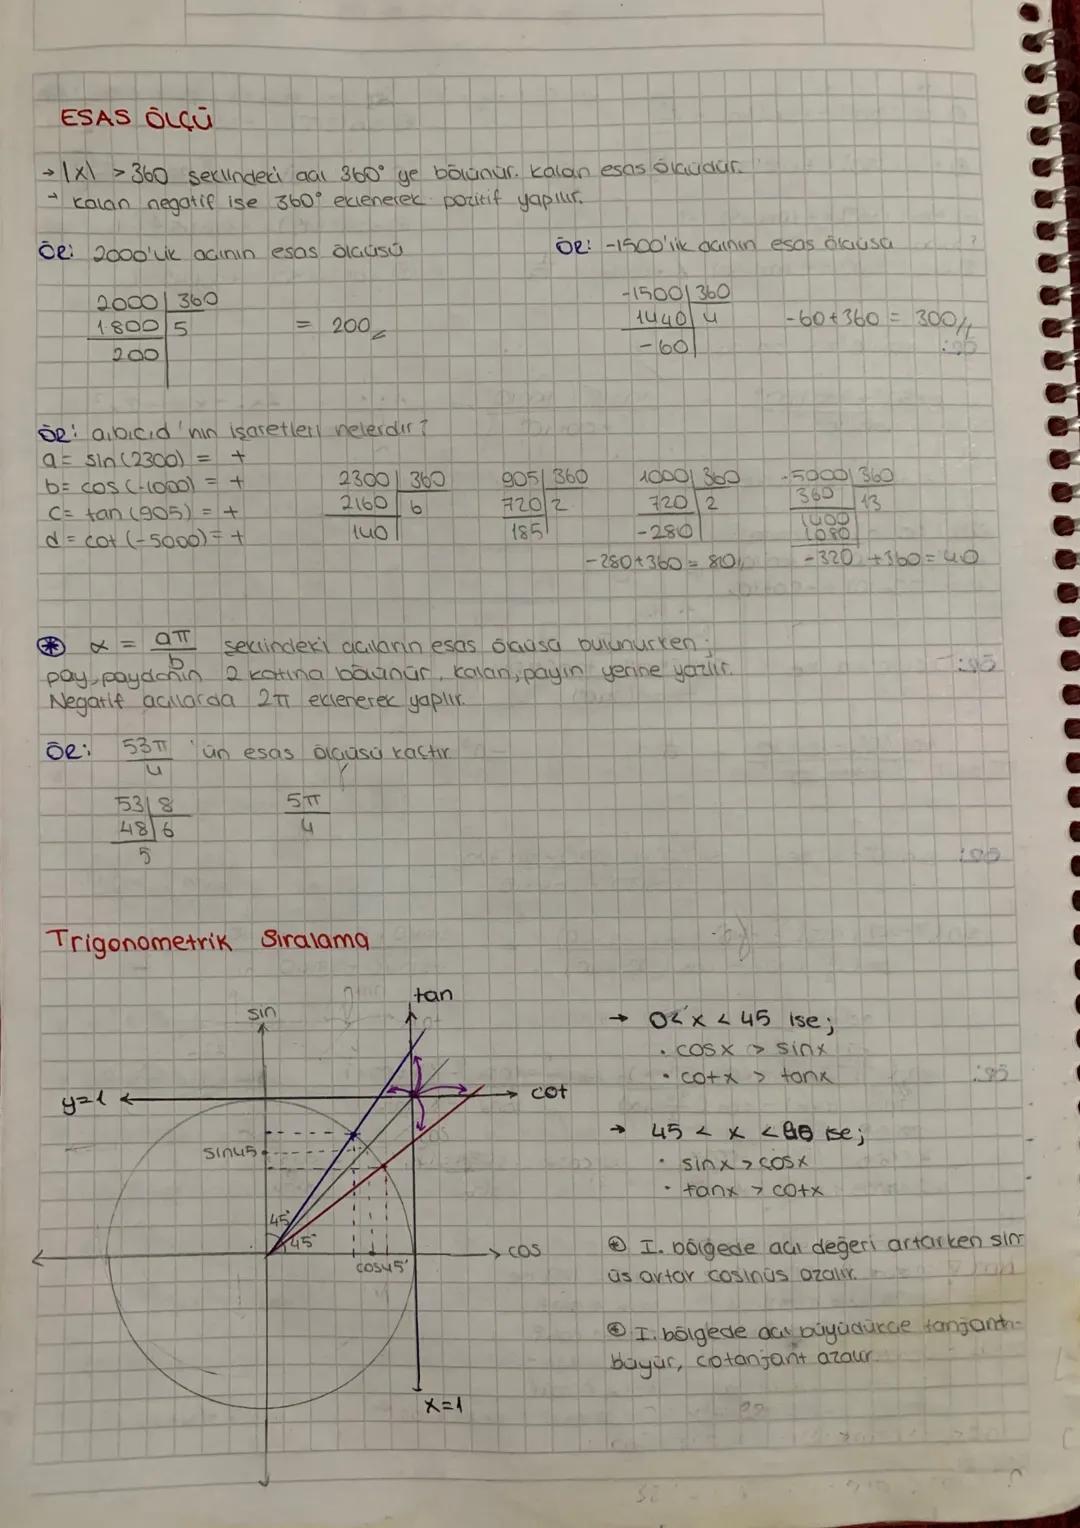 ESAS ÖLÇÜ
→ |x| > 360 şeklindeki açı 360° ye bölünür. Kalan esas ölçüdür.
- Kalan negatif ise 360° eklenerek pozitif yapılır.
ÖR: 2000'lik açının esas ölçüsü
2000 | 360
1800 | 5 = 200
200
ÖR: -1500'lik açının esas ölçüsü
-1500 | 360
1440 | 4 -60+360 = 300
-60
ÖR: a,b,c,d 'nin işaretleri nelerdir?
a = sin(2300) = +
b = cos(-1000) = +
c = tan(905) = +
d = cot(-5000) = +
2300 | 360
2160 | 6
140
905 | 360
720 | 2
185
1000 | 360
720 | 2
-280
-280+360 = 80
-5000 | 360
360 | 13
1400
1080
-320 +360 = 40
* α = aπ/b şeklindeki açıların esas ölçüsü bulunurken;
pay, paydanın 2 katına bölünür, kalan, payın yerine yazılır.
Negatif açılarda 2π eklenerek yapılır.
ÖR: 53π/4 'ün esas ölçüsü kaçtır
53 | 8
48 | 6
5
5π/4
Trigonometrik Sıralama
sin
tan
y=1
cot
sin45
45°
45°
cos45°
cos
x=1
→ 0<x<45 ise;
• cosx > sinx
• cotx > tanx
→ 45 < x < 90 ise;
• sinx > cosx
• tanx > cotx
* I. bölgede açı değeri artarken sin-
üs artar cosinüs azalır.
* I. bölgede açı büyüdükçe tanjant
büyür, cotanjant azalır.